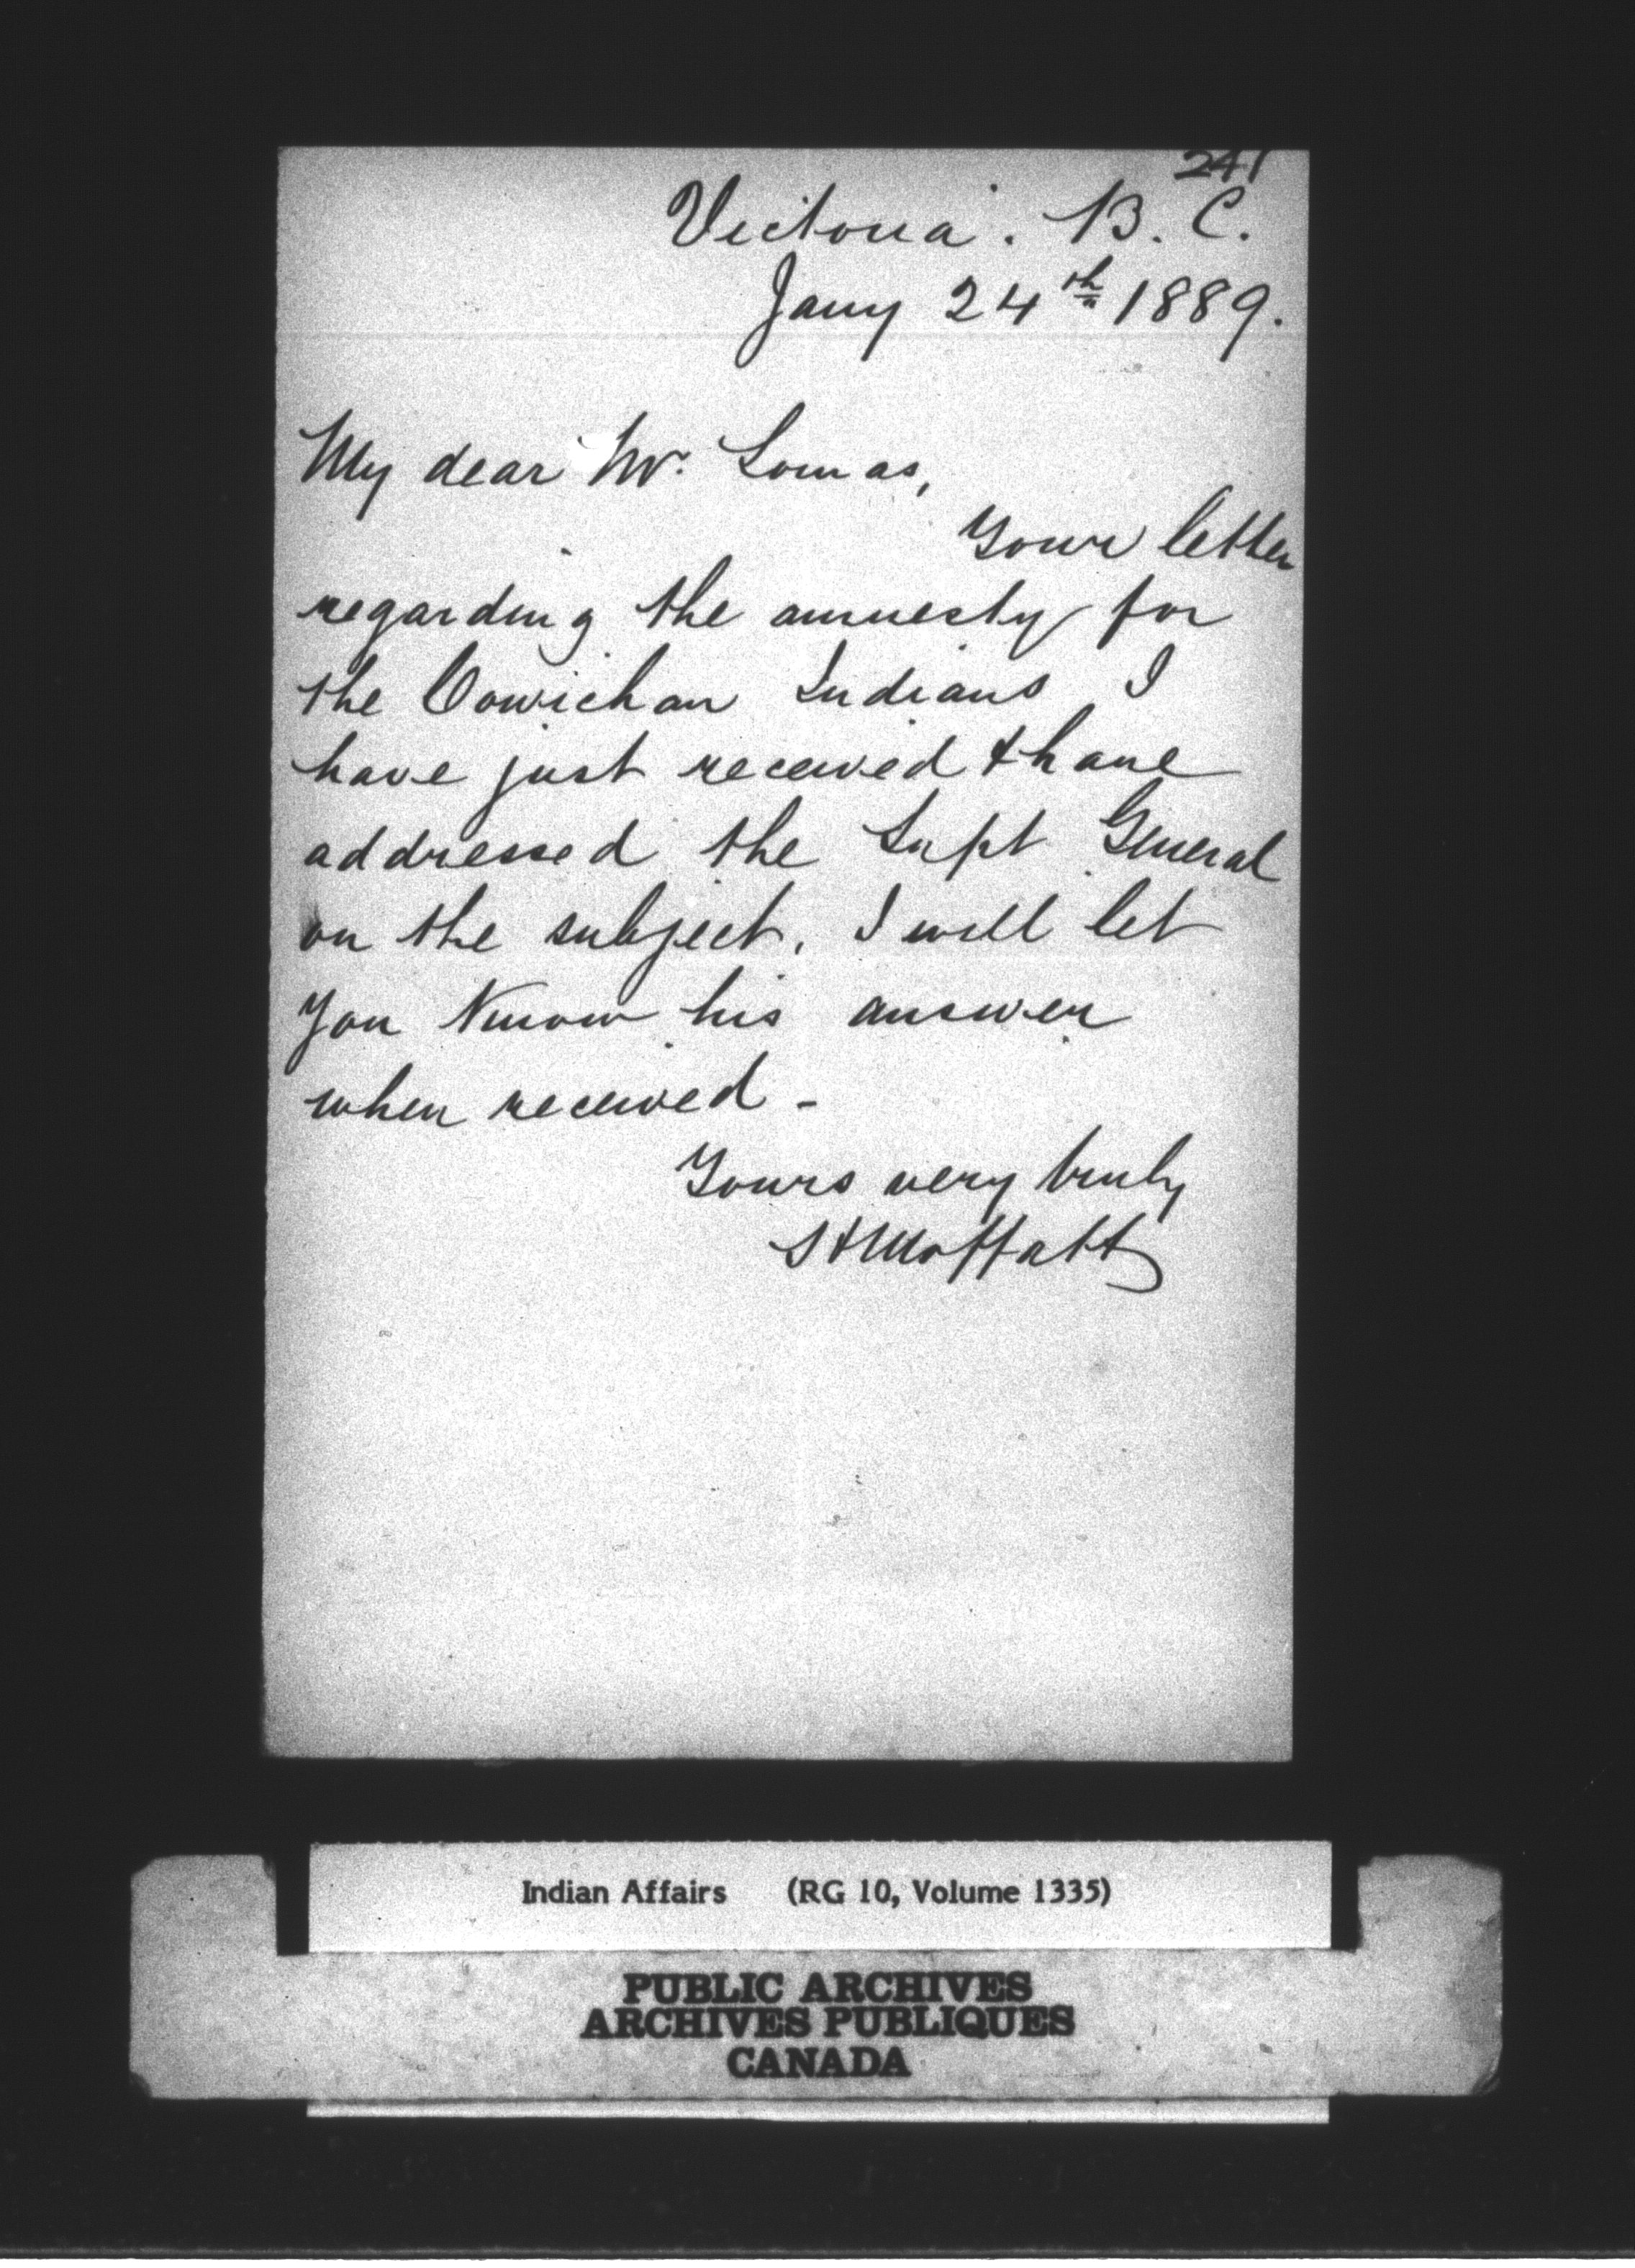 241
Victoria. B. C.
Jany 24th 1889.
My dear Mr. Lomas,
Your letter
regarding the amnesty for
the Cowichan Indians I
have just received & have
addressed the Supt General
on the subject. I will let
you know his answer
when received -
Yours very truly
H Moffatt
Indian Affairs (RG 10, Volume 1335)
PUBLIC ARCHIVES
ARCHIVES PUBLIQUES
CANADA